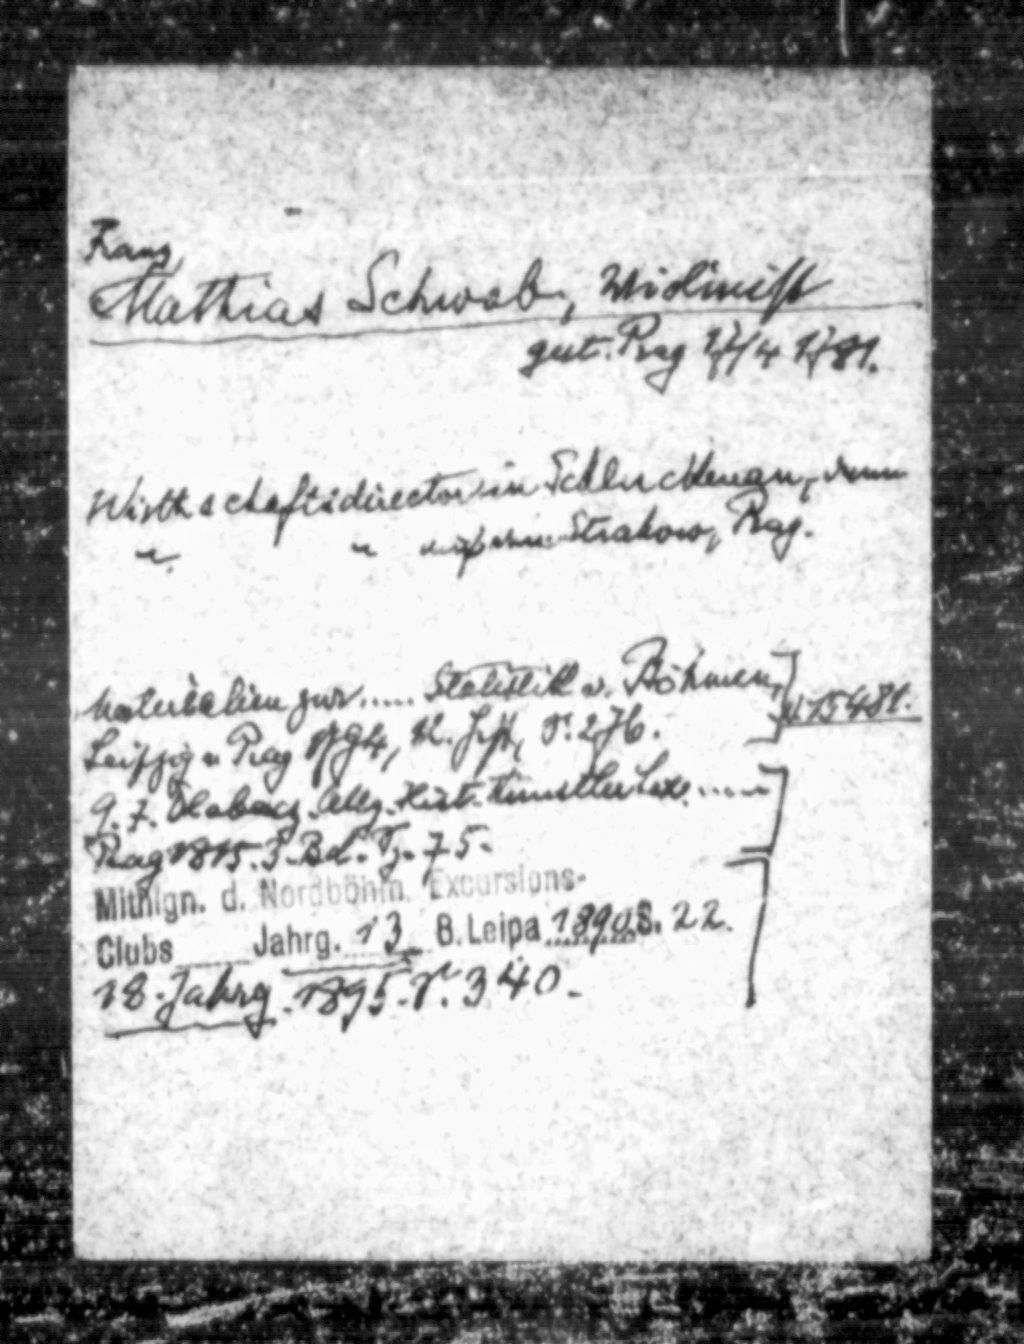 Franz
Mathias Schwab, Violinist
gest. Prag 17/4 1781.
Wirthschaftsdirector in Schluckenau, dann
" " Strahow, Prag.
Materialien zur..... Statistik v. Böhmen,
Leipzig u. Prag 1794, 12. Heft, S. 276. 15481.
G. J. Dlabacz. Allg. Hist. Künstler Lex.....
Prag 1815. 3. Bd. Sp. 75.
Mitthlgn. d. Nordböhm. Excursions-
Clubs Jahrg. 13 B. Leipa 1890 S. 22.
18. Jahrg. 1895. S. 340.